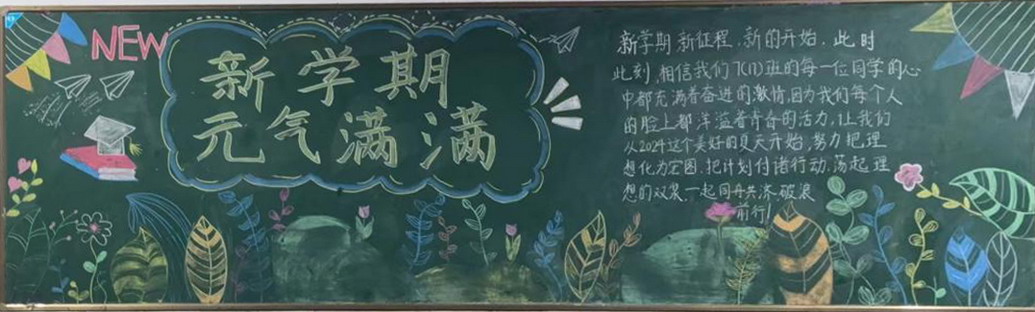 NEW
新学期
元气满满
新学期 新征程，新的开始，此时
此刻，相信我们7(17)班的每一位同学的心
中都充满着奋进的激情，因为我们每个人
的脸上都洋溢着青春的活力，让我们
从2024这个美好的夏天开始，努力把理
想化为宏图，把计划付诸行动，荡起理
想的双桨，一起同舟共济，破浪
前行！